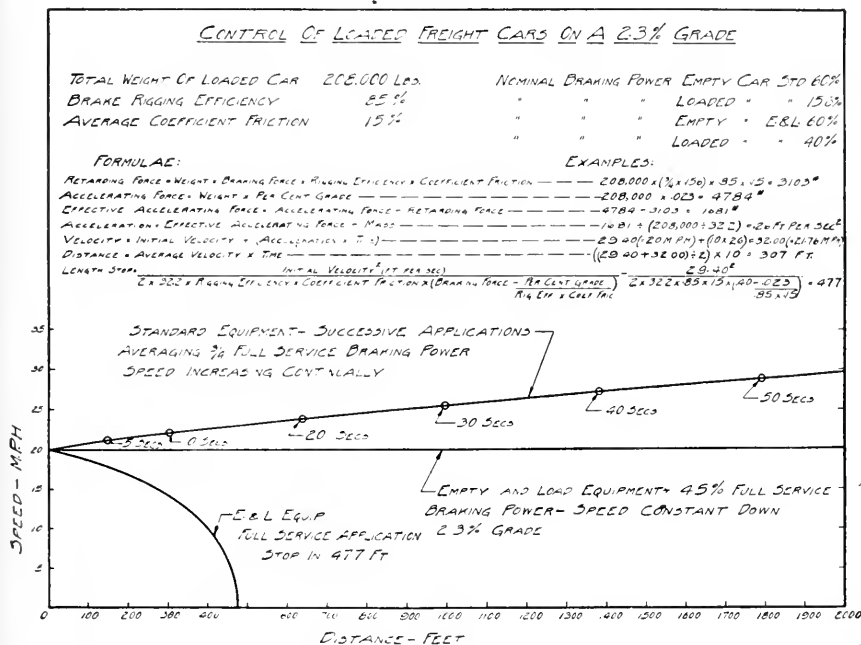 CONTROL OF LOADED FREIGHT CARS ON A 2.3% GRADE
TOTAL WEIGHT OF LOADED CAR 208.000 LBS.
BRAKE RIGGING EFFICIENCY 85%
AVERAGE COEFFICIENT FRICTION 15%
NOMINAL BRAKING POWER EMPTY CAR STD 60%
" " " LOADED " "
" " " EMPTY " E&L 60%
" " " LOADED " " 40%
FORMULAE:
EXAMPLES:
RETARDING FORCE = WEIGHT × BRAKING FORCE × RIGGING EFFICIENCY × COEFFICIENT FRICTION — 208,000 × × .85 × .15 = 3103#
ACCELERATING FORCE = WEIGHT × PER CENT GRADE — 208,000 × .023 = 4784#
EFFECTIVE ACCELERATING FORCE = ACCELERATING FORCE - RETARDING FORCE — 4784 - 3103 = 1681#
ACCELERATION = EFFECTIVE ACCELERATING FORCE ÷ MASS — 1681 ÷ (208,000 ÷ 32.2) = .26 FT PER SEC²
VELOCITY = INITIAL VELOCITY + (ACCELERATION × TIME) — 29.40 (=20 M.P.H) + (10 × .26) = 32.00 (=21.76 M.P.H)
DISTANCE = AVERAGE VELOCITY × TIME — ((29.40 + 32.00) ÷ 2) × 10 = 307 FT.
LENGTH STOP = INITIAL VELOCITY² (FT PER SEC) 29.40²
2 × 32.2 × RIGGING EFFICIENCY × COEFFICIENT FRICTION × (BRAKING FORCE - PER CENT GRADE) 2 × 32.2 × .85 × .15 × (.40 - .023) = 477
RIG EFF × COEF FRIC .85 × .15
STANDARD EQUIPMENT - SUCCESSIVE APPLICATIONS
AVERAGING ¾ FULL SERVICE BRAKING POWER
SPEED INCREASING CONTINUALLY
5 SECS
0 SECS
20 SECS
30 SECS
40 SECS
50 SECS
EMPTY AND LOAD EQUIPMENT - 45% FULL SERVICE
BRAKING POWER - SPEED CONSTANT DOWN
2.3% GRADE
E&L EQUIP
FULL SERVICE APPLICATION
STOP IN 477 FT
SPEED - M.P.H
35
30
25
20
15
10
5
0 100 200 300 400 600 700 800 900 1000 1100 1200 1300 1400 1500 1600 1700 1800 1900 2000
DISTANCE - FEET